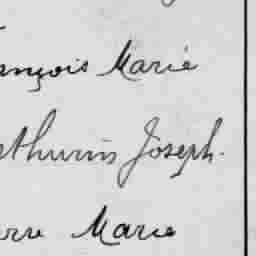 ançois Marie
athurin Joseph.
erre Marie